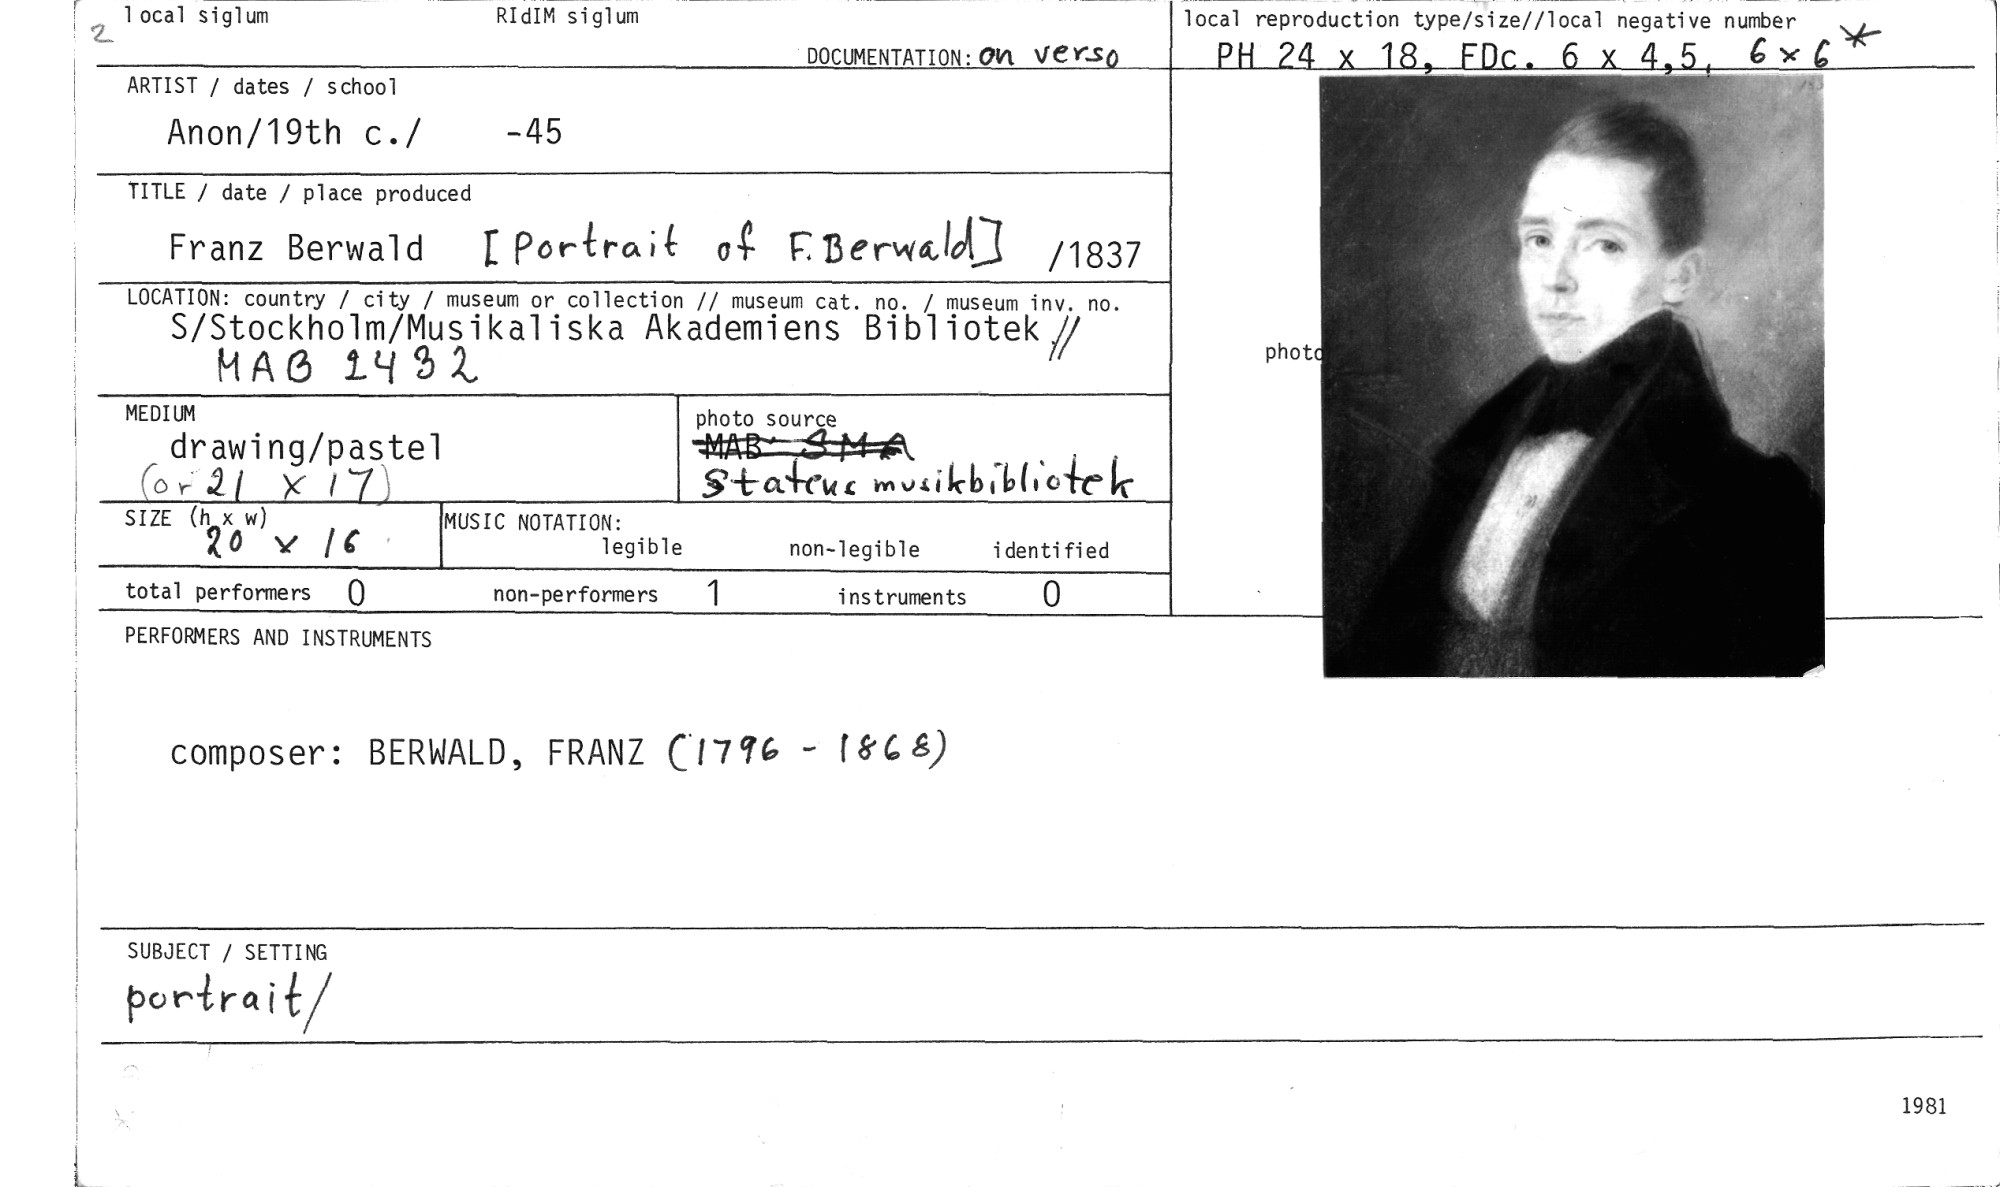 2
local siglum RIdIM siglum
DOCUMENTATION: on verso
local reproduction type/size//local negative number
PH 24 x 18, FDc. 6 x 4,5, 6 x 6 *
ARTIST / dates / school
Anon/19th c./ -45
TITLE / date / place produced
Franz Berwald [Portrait of F. Berwald] /1837
LOCATION: country / city / museum or collection // museum cat. no. / museum inv. no.
S/Stockholm/Musikaliska Akademiens Bibliotek //
MAB 2432
photo
MEDIUM
drawing/pastel
(or 21 x 17)
photo source
MAB SMA
Statens musikbibliotek
SIZE (h x w)
20 x 16
MUSIC NOTATION:
legible non-legible identified
total performers 0 non-performers 1 instruments 0
PERFORMERS AND INSTRUMENTS
composer: BERWALD, FRANZ (1796 - 1868)
SUBJECT / SETTING
portrait/
1981